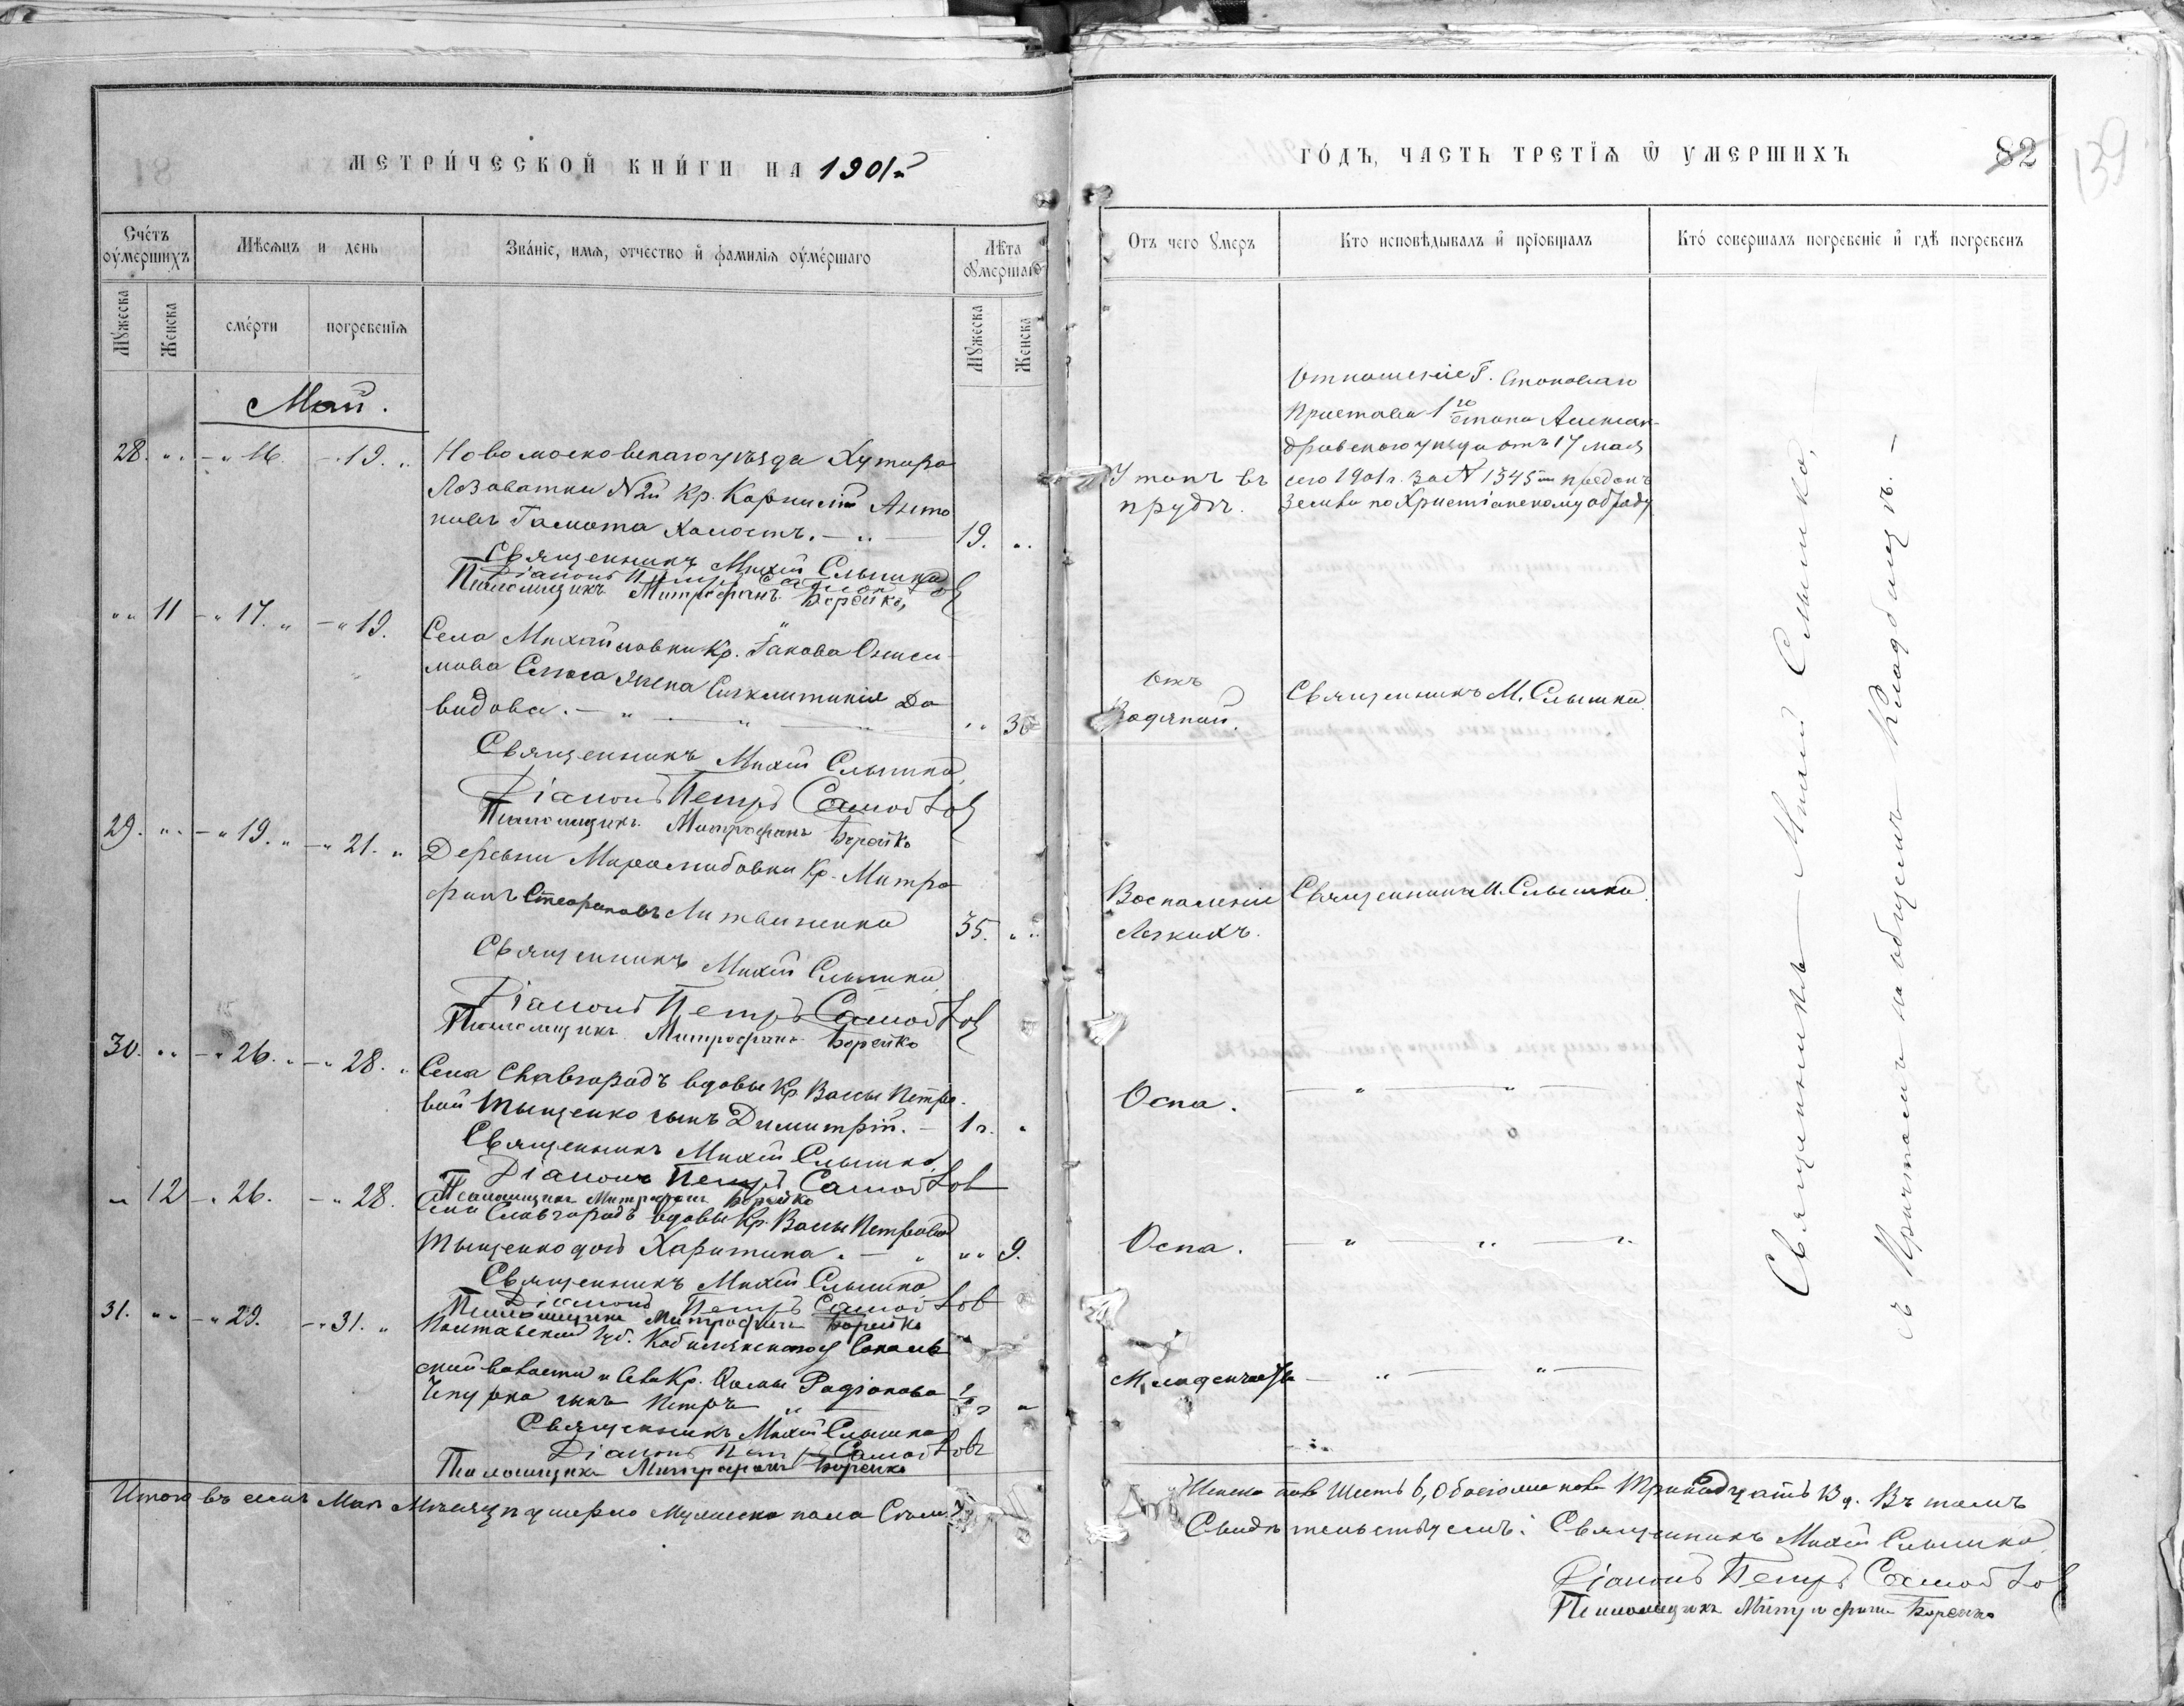 МЕТРИ́ЧЕСКОЙ КНИ́ГИ НА 1901й
Счётъ оу́мершихъ
Мѣсяцъ и день
Зва́нїе, имя, отчество и фамилїя оу́ме́ршаго
Лѣта оу́мершаго
Мꙋжеска
Женска
сме́рти
погребенїя
Мꙋжеска
Женска
Май.
28. " " - " 16. - 19. " Новомосковскаго уѣзда Хутора
Лозоватки № 2й Кр. Корнилій Анто
новъ Гамота холостъ. - " - 19. "
Священникъ Михаій Слышко
Діаконъ Петръ Самойлов
Псаломщикъ Митрофанъ Борейко,
" " 11 - " 17. " - " 19. Села Михайловки Кр. Іакова Ониси-
мова жена Синклитикія Да
видова. - " - " - " " 36
Священникъ Михаій Слышко
Діаконъ Петръ Самойлов
Псаломщикъ Митрофанъ Борейко
29. " " - " 19. " - " 21. " Деревни Миролюбовки Кр. Митро
фанъ Стефановъ Литвиненко 35. " "
Священникъ Михаій Слышко
Діаконъ Петръ Самойлов
Псаломщикъ Митрофанъ Борейко
30. " " - " 26. " - " 28. " Села Славгородъ вдовы Кр. Вассы Петро-
вой Тыщенко сынъ Димитрій. - 1 г. "
Священникъ Михаій Слышко
Діаконъ Петръ Самойлов
Псаломщикъ Митрофанъ Борейко
" 12 - " 26. - " 28. Села Славгородъ вдовы Кр. Вассы Петровой
Тыщенко дочь Харитина. - " " " 9.
Священникъ Михаій Слышко
Діаконъ Петръ Самойлов
Псаломщикъ Митрофанъ Борейко
31. " " - " 29. - " 31. " Полтавской Губ. Кобелякскаго у Сокольс
ской волости и Села Кр. Родіонова
Чепурка сынъ Петръ "
Священникъ Михаій Слышко
Діаконъ Петръ Самойловъ
Псаломщикъ Митрофанъ Борейко
Итого въ семъ Маѣ Мѣсяцѣ умерло Мужеска пола Семь 7
ГО́ДЪ, ЧАСТЬ ТРЕТЇЯ Ѿ УМЕРШИХЪ
82
139
Отъ чего ꙋмеръ
Кто исповѣдывалъ и прїобщалъ
Кто́ совершалъ погребенїе и гдѣ погребенъ
Отношеніе Г. Становаго
Пристава 1го Стана Алексан-
дровскаго уѣзда отъ 17 мая
Утопъ въ сего 1901 г. за № 1345 преданъ
прудѣ. Землѣ по Христіанскому обряду
Отъ
Водяной. Священникъ М. Слышко.
Воспаленіе Священникъ М. Слышко.
Легкихъ.
Оспа. - " - " -
Оспа. - " - " - "
Младенчества - " - " -
Священникъ - Михаій Слышко,
съ Причтомъ на общемъ Кладбищѣ. -
Женска пола Шесть 6, Обоего пола Тринадцать 13 д. Въ томъ
Свидѣтельствуемъ: Священникъ Михаій Слышко
Діаконъ Петръ Самойлов
Псаломщикъ Митрофанъ Борейко